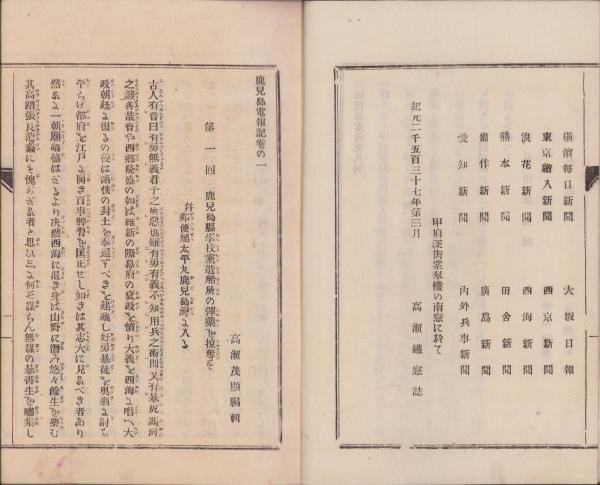 橫濱每日新聞
大坂日報
東京繪入新聞
西京新聞
浪花新聞
西海新聞
熊本新聞
田舍新聞
備作新聞
廣島新聞
愛知新聞
內外兵事新聞
紀元二千五百三十七年第三月
甲府溪街紫翠樓の南窓に於て
高瀨鐵窓誌
鹿兒島電報記卷の一
高瀨茂顯編輯
第一回 鹿兒島縣學校黨造船所の彈藥を掠奪を
幷郵便船太平丸鹿兒島灣よ入る
古人有言曰有勇無義君子之所惡也雖有勇有義不知用兵之術則又有暴虎馮河
之譏善哉言や西鄕隆盛の如き維新の際幕府の衰政を憤り大義を西海よ唱へ大
政朝廷よ復るの後は諸侯の封土を奉還すべきを建議し好勇暴徒を奧羽よ討ち
平らけ都府を江戶よ開き百事弊習を匡正せし如きは其志大に見るべき者あり
然るよ一朝廟議協はざるより決然西海に退き身は山野に潛み悠々餘生を樂む
其高踏張良范蠡にも愧ぢざる者と思ひしよ何ぞ謀らん無謀の暴書生を嘯集し